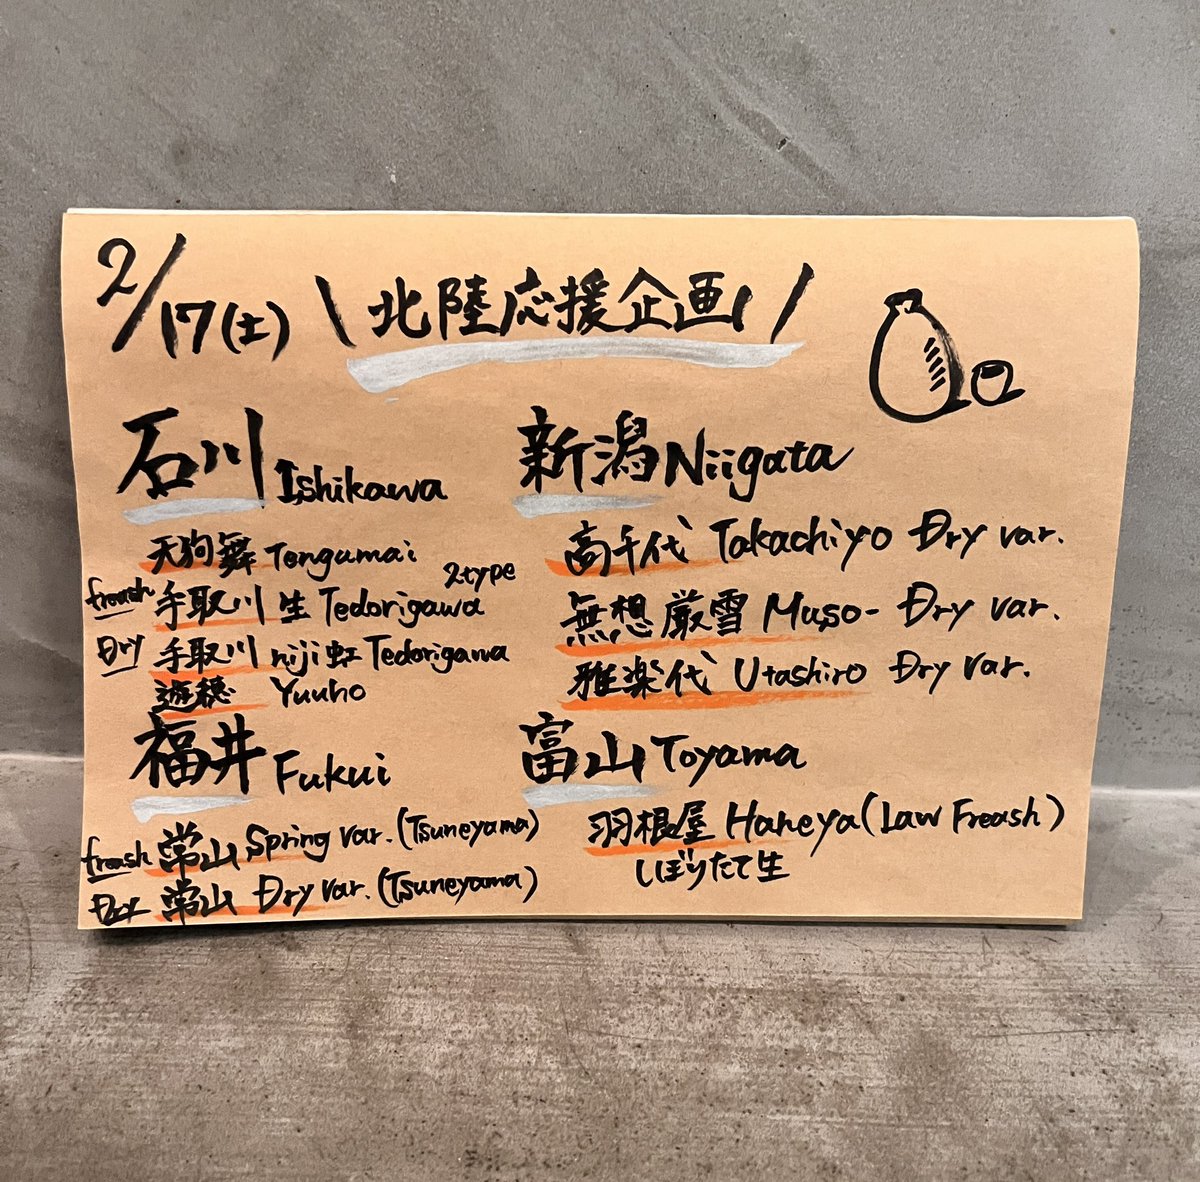 2/17(土) \ 北陸応援企画 /
石川 Ishikawa
天狗舞 Tengumai
2type
freash 手取川 生 Tedorigawa
Dry 手取川 niji虹 Tedorigawa
遊穂 Yuuho
福井 Fukui
freash 常山 Spring var. (Tsuneyama)
Dry 常山 Dry var. (Tsuneyama)
新潟 Niigata
高千代 Takachiyo Dry var.
無想 厳雪 Muso- Dry var.
雅楽代 Utashiro Dry var.
富山 Toyama
羽根屋 Haneya (Law Freash)
しぼりたて生